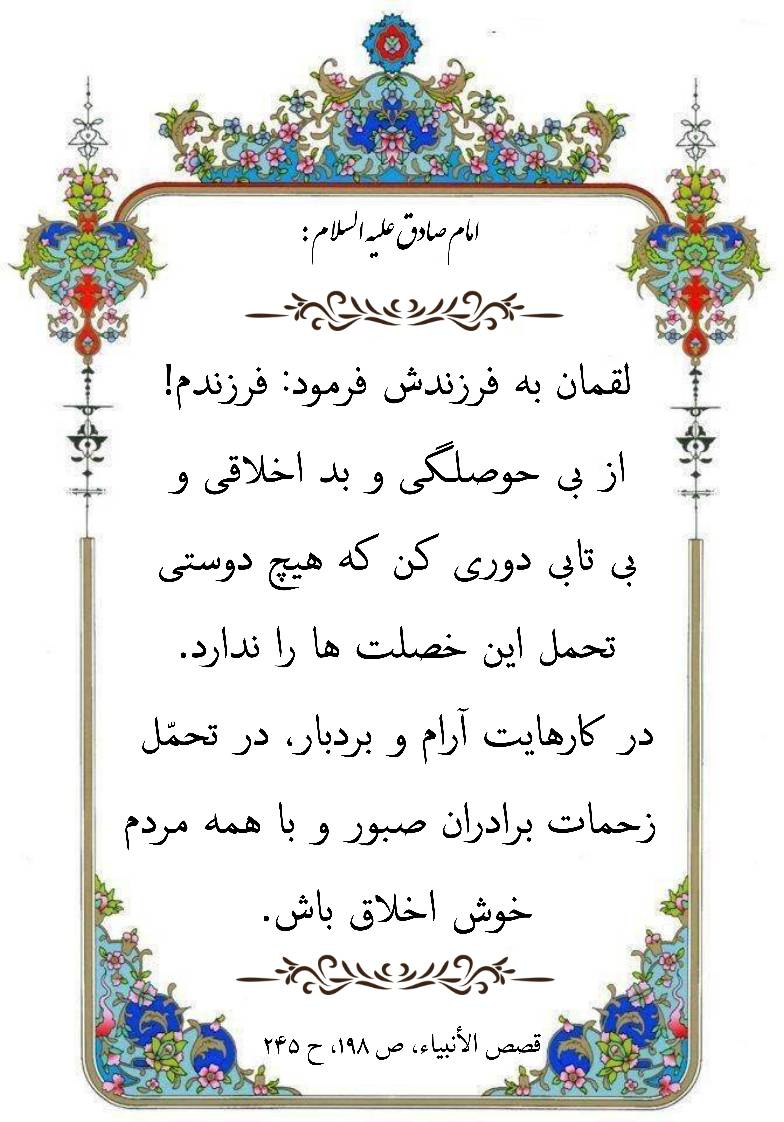 امام صادق علیه السلام :
لقمان به فرزندش فرمود: فرزندم!
از بی حوصلگی و بد اخلاقی و
بی تابی دوری کن که هیچ دوستی
تحمل این خصلت ها را ندارد.
در کارهایت آرام و بردبار، در تحمّل
زحمات برادران صبور و با همه مردم
خوش اخلاق باش.
قصص الأنبیاء، ص ۱۹۸، ح ۲۴۵